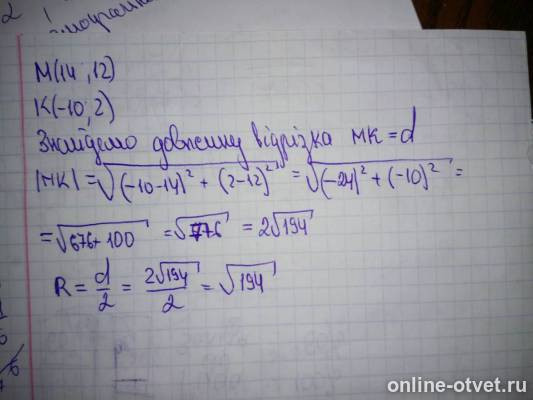 2
М(14; 12)
К(-10; 2)
Знайдемо довжину відрізка МК = d
|МК| = √(-10-14)² + (2-12)² = √(-24)² + (-10)² =
= √676+100 = √776 = 2√194
R = d/2 = 2√194/2 = √194
online-otvet.ru